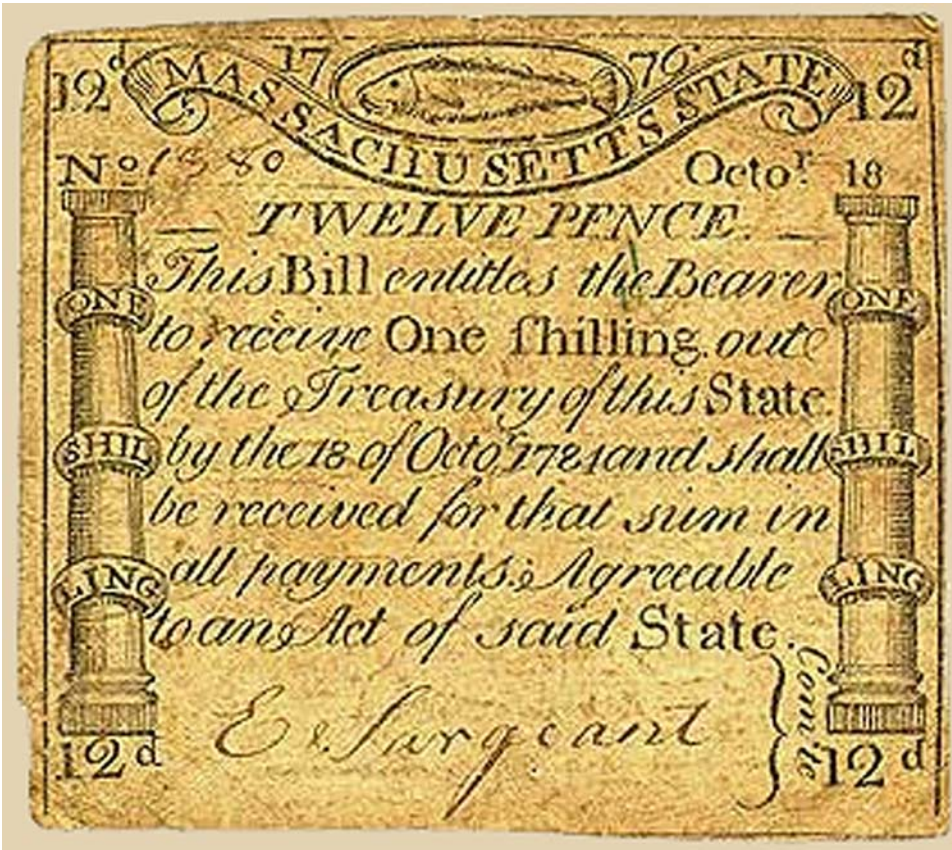 12d 17 76 12d
MASSACHUSETTS STATE
No. 1380 Octor. 18
TWELVE PENCE.
This Bill entitles the Bearer
to receive One ſhilling. oute
of the Treasury of this State.
by the 18 of Octor. 1781 and shall
be received for that sum in
all payments: Agreeable
to an Act of said State.
ONE ONE
SHIL SHIL
LING LING
E Sargeant
Comte
12d 12d